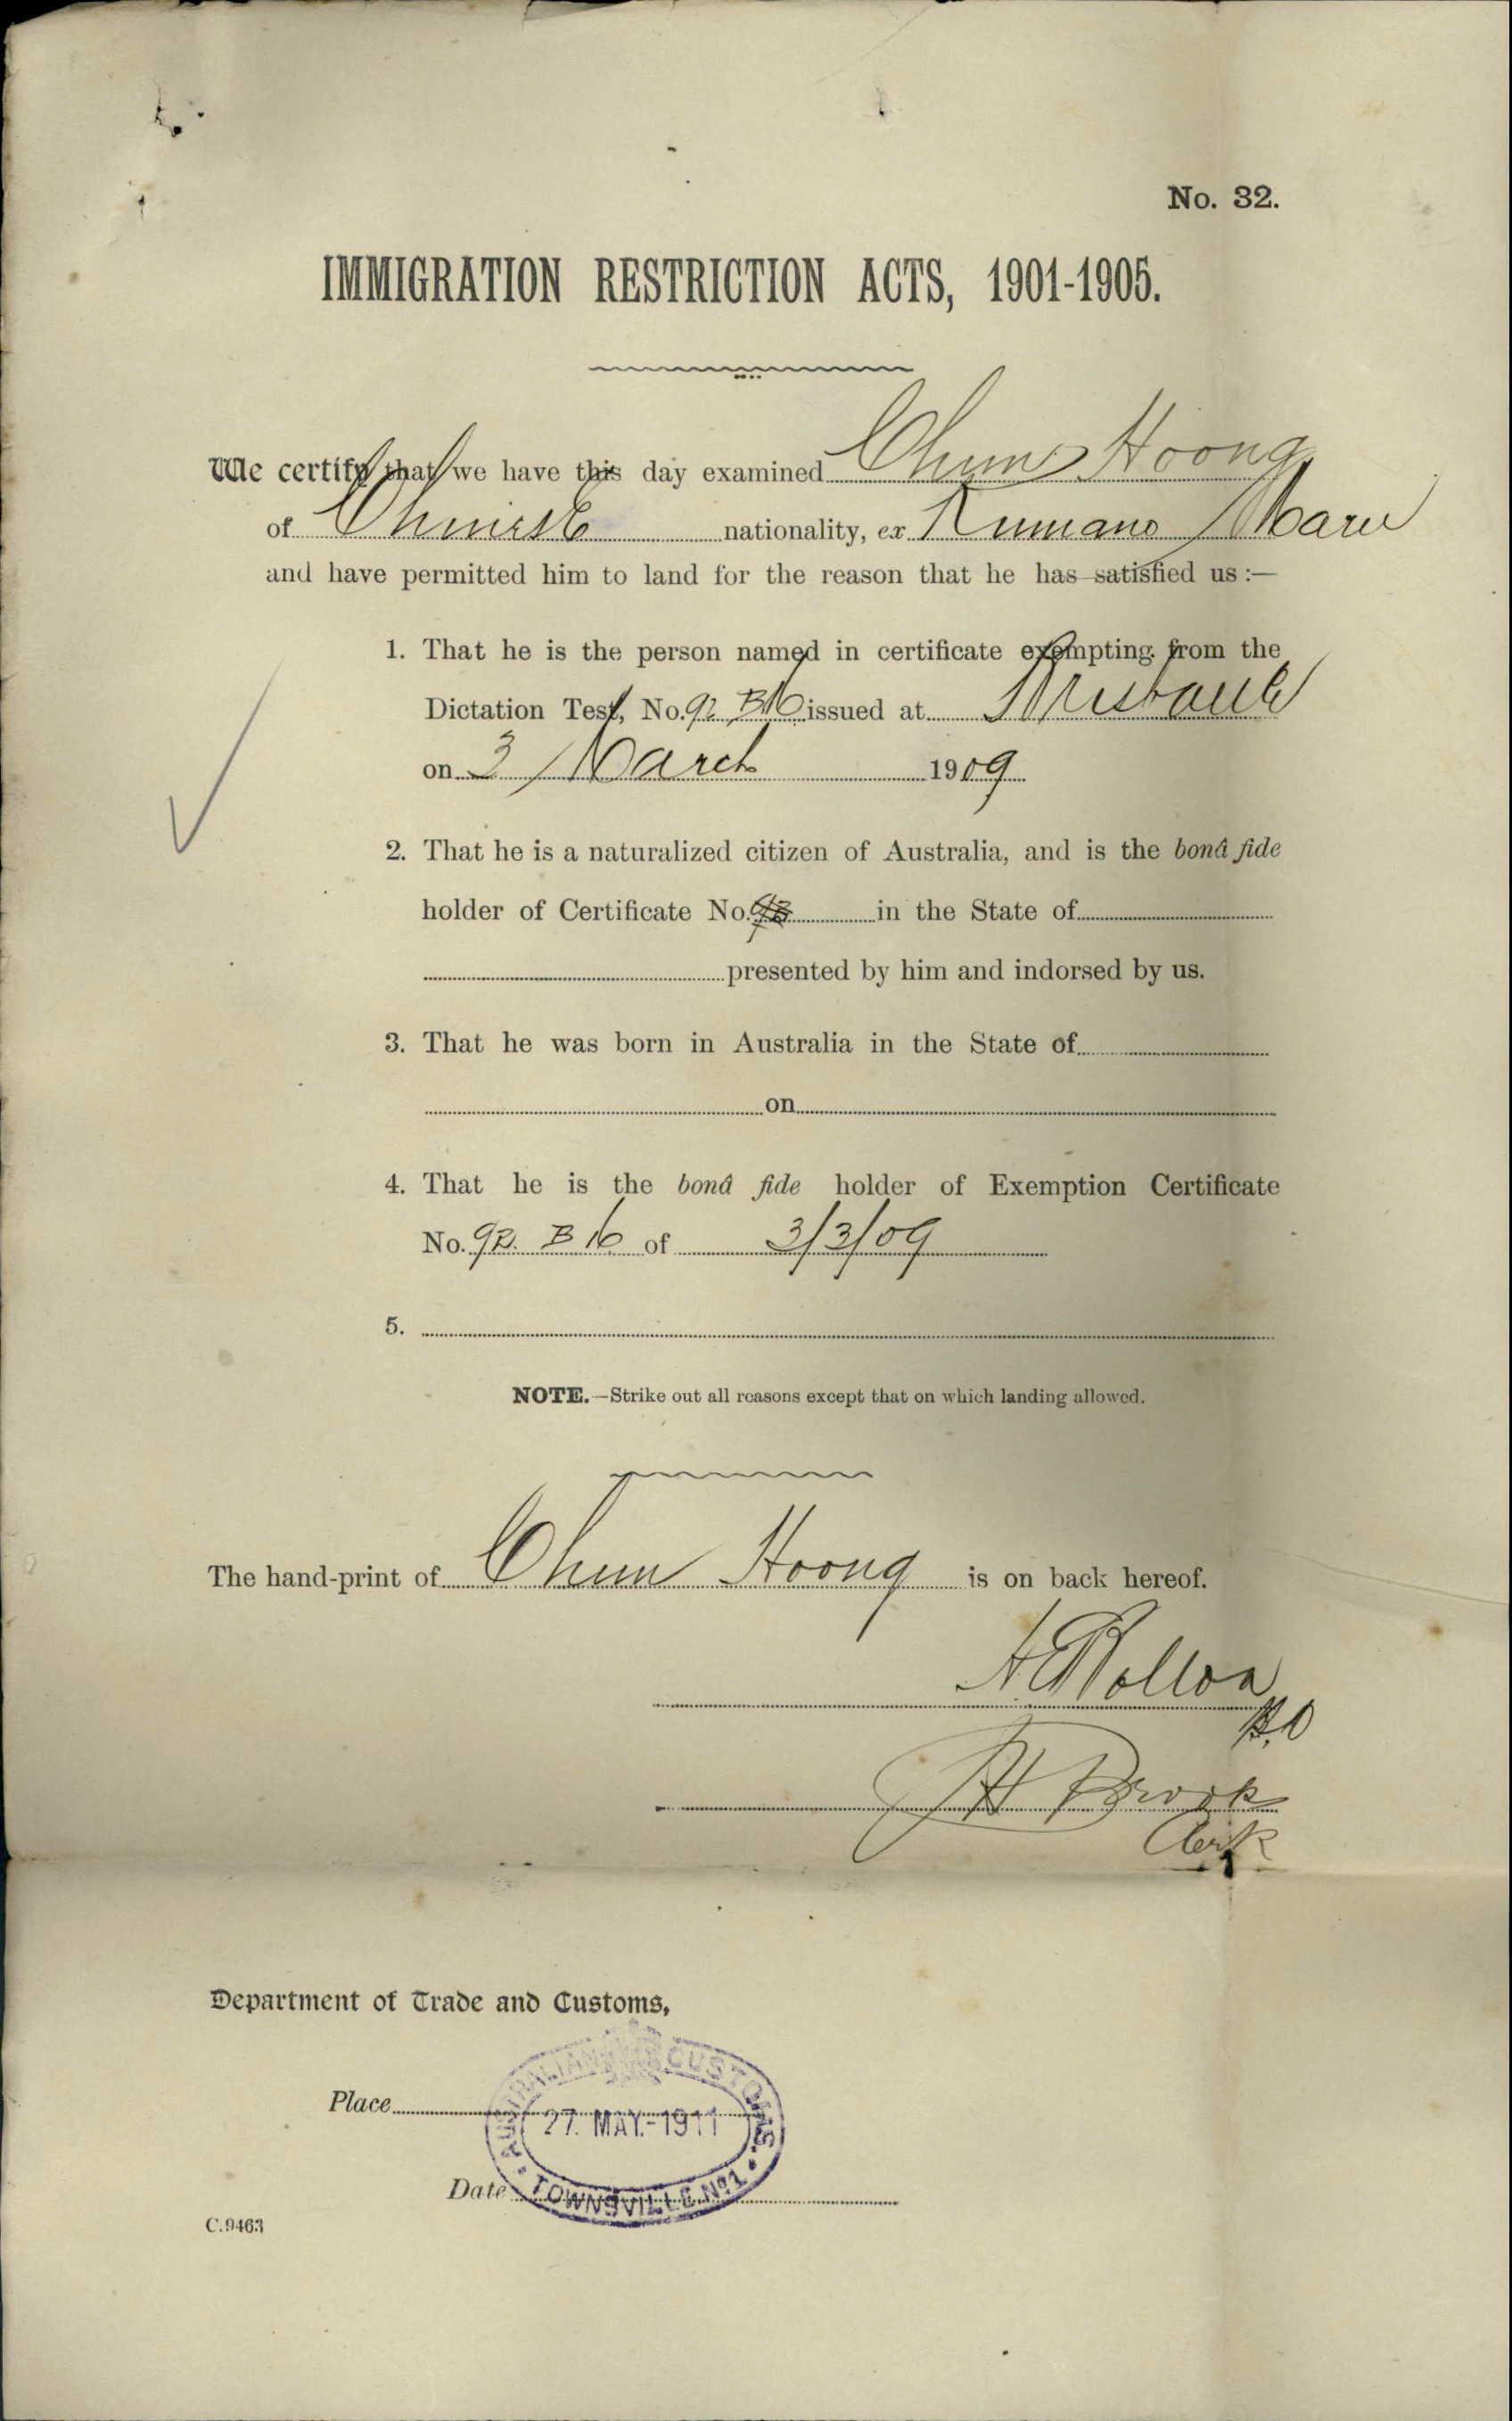 No. 32.
IMMIGRATION RESTRICTION ACTS, 1901-1905.
We certify that we have this day examined Chun Hoong
of Chinese nationality, ex Kumano Maru
and have permitted him to land for the reason that he has satisfied us :—
1. That he is the person named in certificate exempting from the
Dictation Test, No. 92 B16 issued at Brisbane
on 3 March 1909
2. That he is a naturalized citizen of Australia, and is the bonâ fide
holder of Certificate No. in the State of
presented by him and indorsed by us.
3. That he was born in Australia in the State of
on
4. That he is the bonâ fide holder of Exemption Certificate
No. 92. B 16 of 3/3/09
5.
NOTE.—Strike out all reasons except that on which landing allowed.
The hand-print of Chun Hoong is on back hereof.
H Brook
Clerk
Department of Trade and Customs,
AUSTRALIAN CUSTOMS
Place
27. MAY.-1911
Date
TOWNSVILLE No 1
C.9463